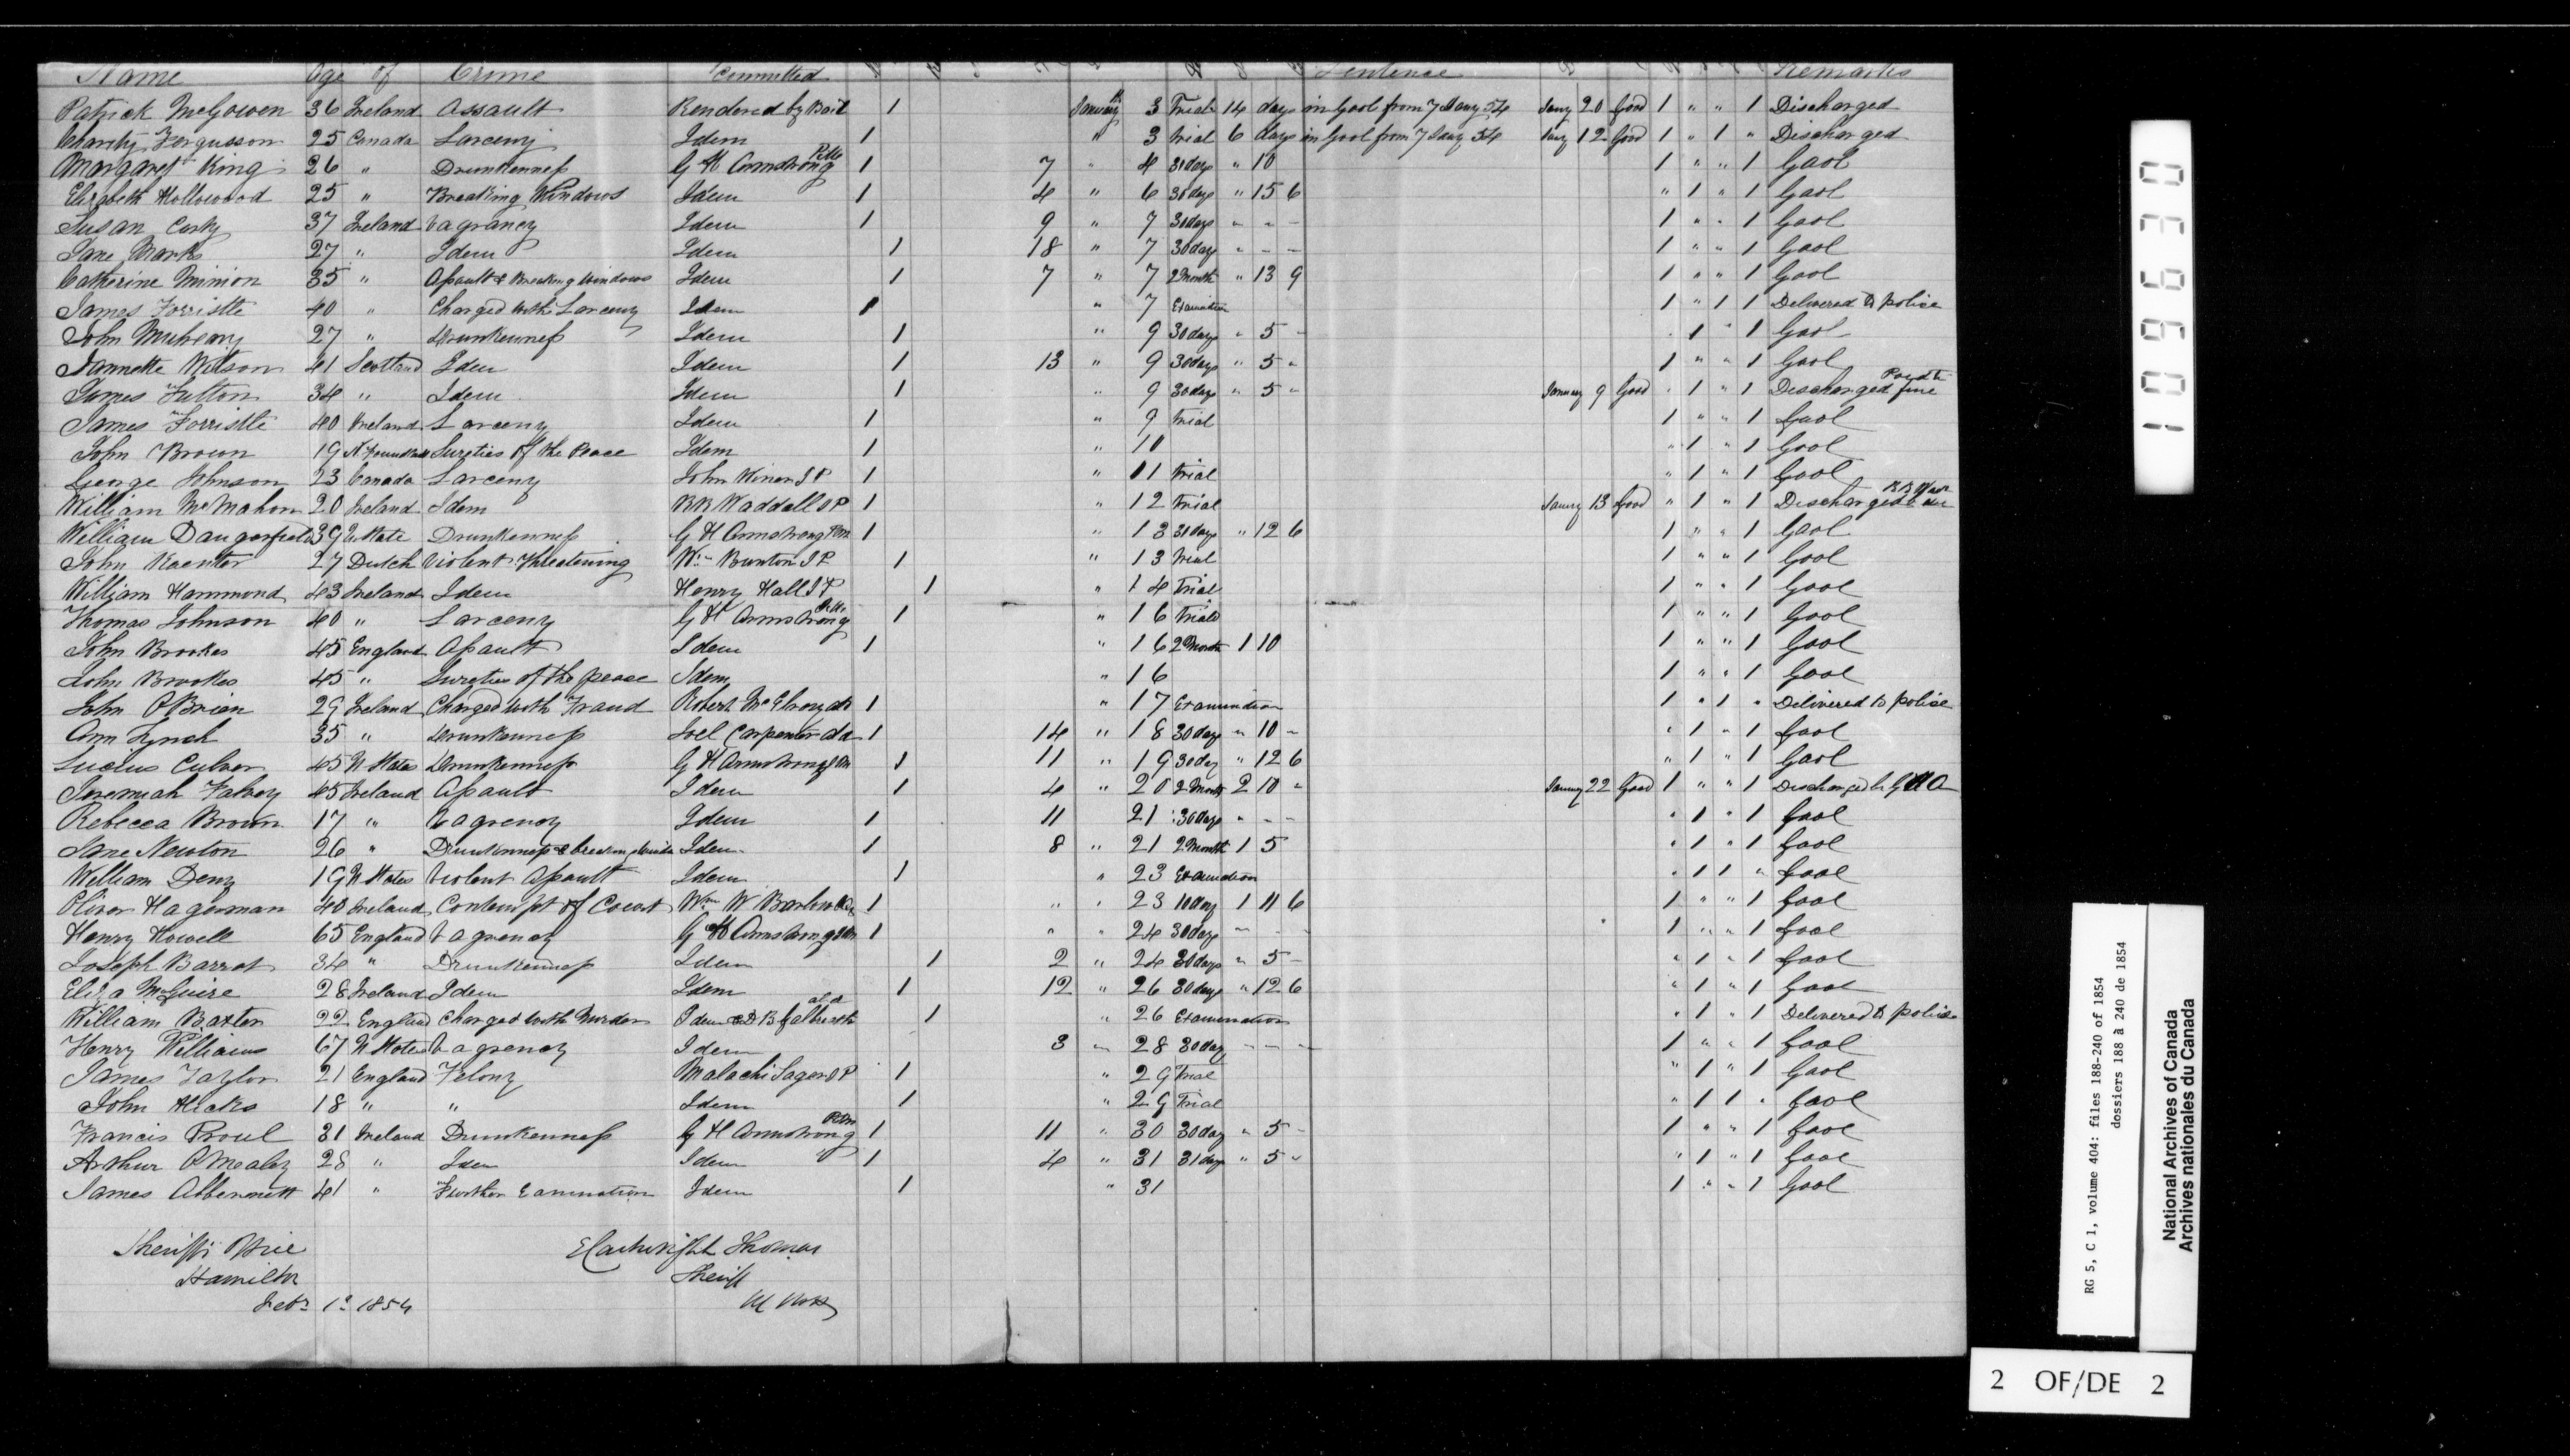 Name Age of Crime Committed Sentence Remarks
Patrick McGowen 36 Ireland Assault Rendered by Bail 1 January 3 Trial 14 days in Gaol from 7 Jany 54 Jany 20 Good 1 " " 1 Discharged
Charity Fergusson 25 Canada Larceny Idem 1 " 3 Trial 6 days in Gaol from 7 Jany 54 Jany 12 Good 1 " 1 " Discharged
Margaret King 26 " Drunkenness G H Armstrong 1 7 " 4 31 days " 10 1 " " 1 Gaol
Elizabeth Hollowood 25 " Breaking Windows Idem 1 4 " 6 30 days " 15 6 " 1 " 1 Gaol
Susan 37 Ireland Vagrancy Idem 1 9 " 7 30 days " - - 1 " " 1 Gaol
Jane Marks 27 " Idem Idem 1 18 " 7 30 days " - - 1 " " 1 Gaol
Catherine Minion 35 " Assault & Breaking Windows Idem 1 7 " 7 2 Month " 13 9 1 " " 1 Gaol
James Forristte 40 " Charged with Larceny Idem 1 " 7 Examination 1 " 1 1 Delivered to police
John 27 " Drunkenness Idem 1 " 9 30 days " 5 - " 1 " 1 Gaol
Jannette Wilson 41 Scotland Idem Idem 1 13 " 9 30 days " 5 " 1 " " 1 Gaol
James Fulton 34 " Idem Idem 1 " 9 30 days " 5 " January 9 Good " 1 " 1 Discharged Paid the fine
James Forristte 40 Ireland Larceny Idem 1 " 9 Trial 1 " " 1 Gaol
John Brown 19 Sureties of the Peace Idem 1 " 10 " 1 " 1 Gaol
George Johnson 23 Canada Larceny John J P 1 " 11 Trial " 1 " 1 Gaol
William McMahon 20 Ireland Idem R R Waddell J P 1 " 12 Trial Jany 13 Good " 1 " 1 Discharged
William Daugerfield 39 U State Drunkenness G H Armstrong 1 " 13 31 days " 12 6 1 " " 1 Gaol
John Kaenter 27 Dutch Violent Threatening Wm Burnton J P 1 " 13 Trial 1 " " 1 Gaol
William Hammond 43 Ireland Idem Henry Hall J P 1 " 14 Trial 1 " " 1 Gaol
Thomas Johnson 40 " Larceny G H Armstrong 1 " 16 Trial 1 " " 1 Gaol
John Brookes 45 England Assault Idem 1 " 16 2 Month 1 10 1 " " 1 Gaol
John Brookes 45 " Sureties of the peace Idem " 16 1 " " 1 Gaol
John O'Brien 29 Ireland Charged with Fraud Robert McElroy 1 " 17 Examination 1 " 1 " Delivered to police
Ann Lynch 35 " Drunkenness Joel Carpenter 1 14 " 18 30 days " 10 - " 1 " 1 Gaol
Lucius Culver 45 U States Drunkenness G H Armstrong 1 11 " 19 30 day " 12 6 " 1 " 1 Gaol
Jeremiah Falvey 45 Ireland Assault Idem 1 4 " 20 2 Month 2 10 " January 22 Good 1 " " 1 Discharged by G H A
Rebecca Brown 17 " Vagrancy Idem 1 11 21 30 days " - - " 1 " 1 Gaol
Jane Newton 26 " Drunkenness & breaking Idem 1 8 " 21 2 Month 1 5 " 1 " 1 Gaol
William Deny 19 U States Violent Assault Idem 1 " 23 Examination " 1 1 " Gaol
Oliver Hagerman 40 Ireland Contempt of Court Wm W Barlow 1 " " 23 10 day 1 11 6 1 " " 1 Gaol
Henry Howell 65 England Vagrancy G H Armstrong 1 " " 24 30 days - - - 1 " " 1 Gaol
Joseph Barrot 34 " Drunkenness Idem 1 2 " 24 30 days " 5 - " 1 " 1 Gaol
Eliza McGuire 28 Ireland Idem Idem 1 12 " 26 30 days " 12 6 " 1 " 1 Gaol
William Baxter 22 England Charged with Murder Idem & D B Galbreath ald 1 " 26 Examination " 1 " 1 Delivered to police
Henry Williams 67 U States Vagrancy Idem 3 " 28 30 day - - - 1 " " 1 Gaol
James Taylor 21 England Felony Malachi Sager J P 1 " 29 Trial " 1 " 1 Gaol
John Hicks 18 " " Idem 1 " 29 Trial " 1 1 " Gaol
Francis Proul 31 Ireland Drunkenness G H Armstrong 1 11 " 30 30 day " 5 - 1 " " 1 Gaol
Arthur O'Mealey 28 " Idem Idem 1 4 " 31 31 days " 5 " " 1 " 1 Gaol
James Abbernett 41 " Further Examination Idem 1 " 31 1 " " 1 Gaol
Sheriffs Office E Cartwright Thomas
Hamilton Sheriff
Feby 1st 1854
1096630
RG 5, C 1, volume 404: files 188-240 of 1854
dossiers 188 à 240 de 1854
National Archives of Canada
Archives nationales du Canada
2 OF/DE 2